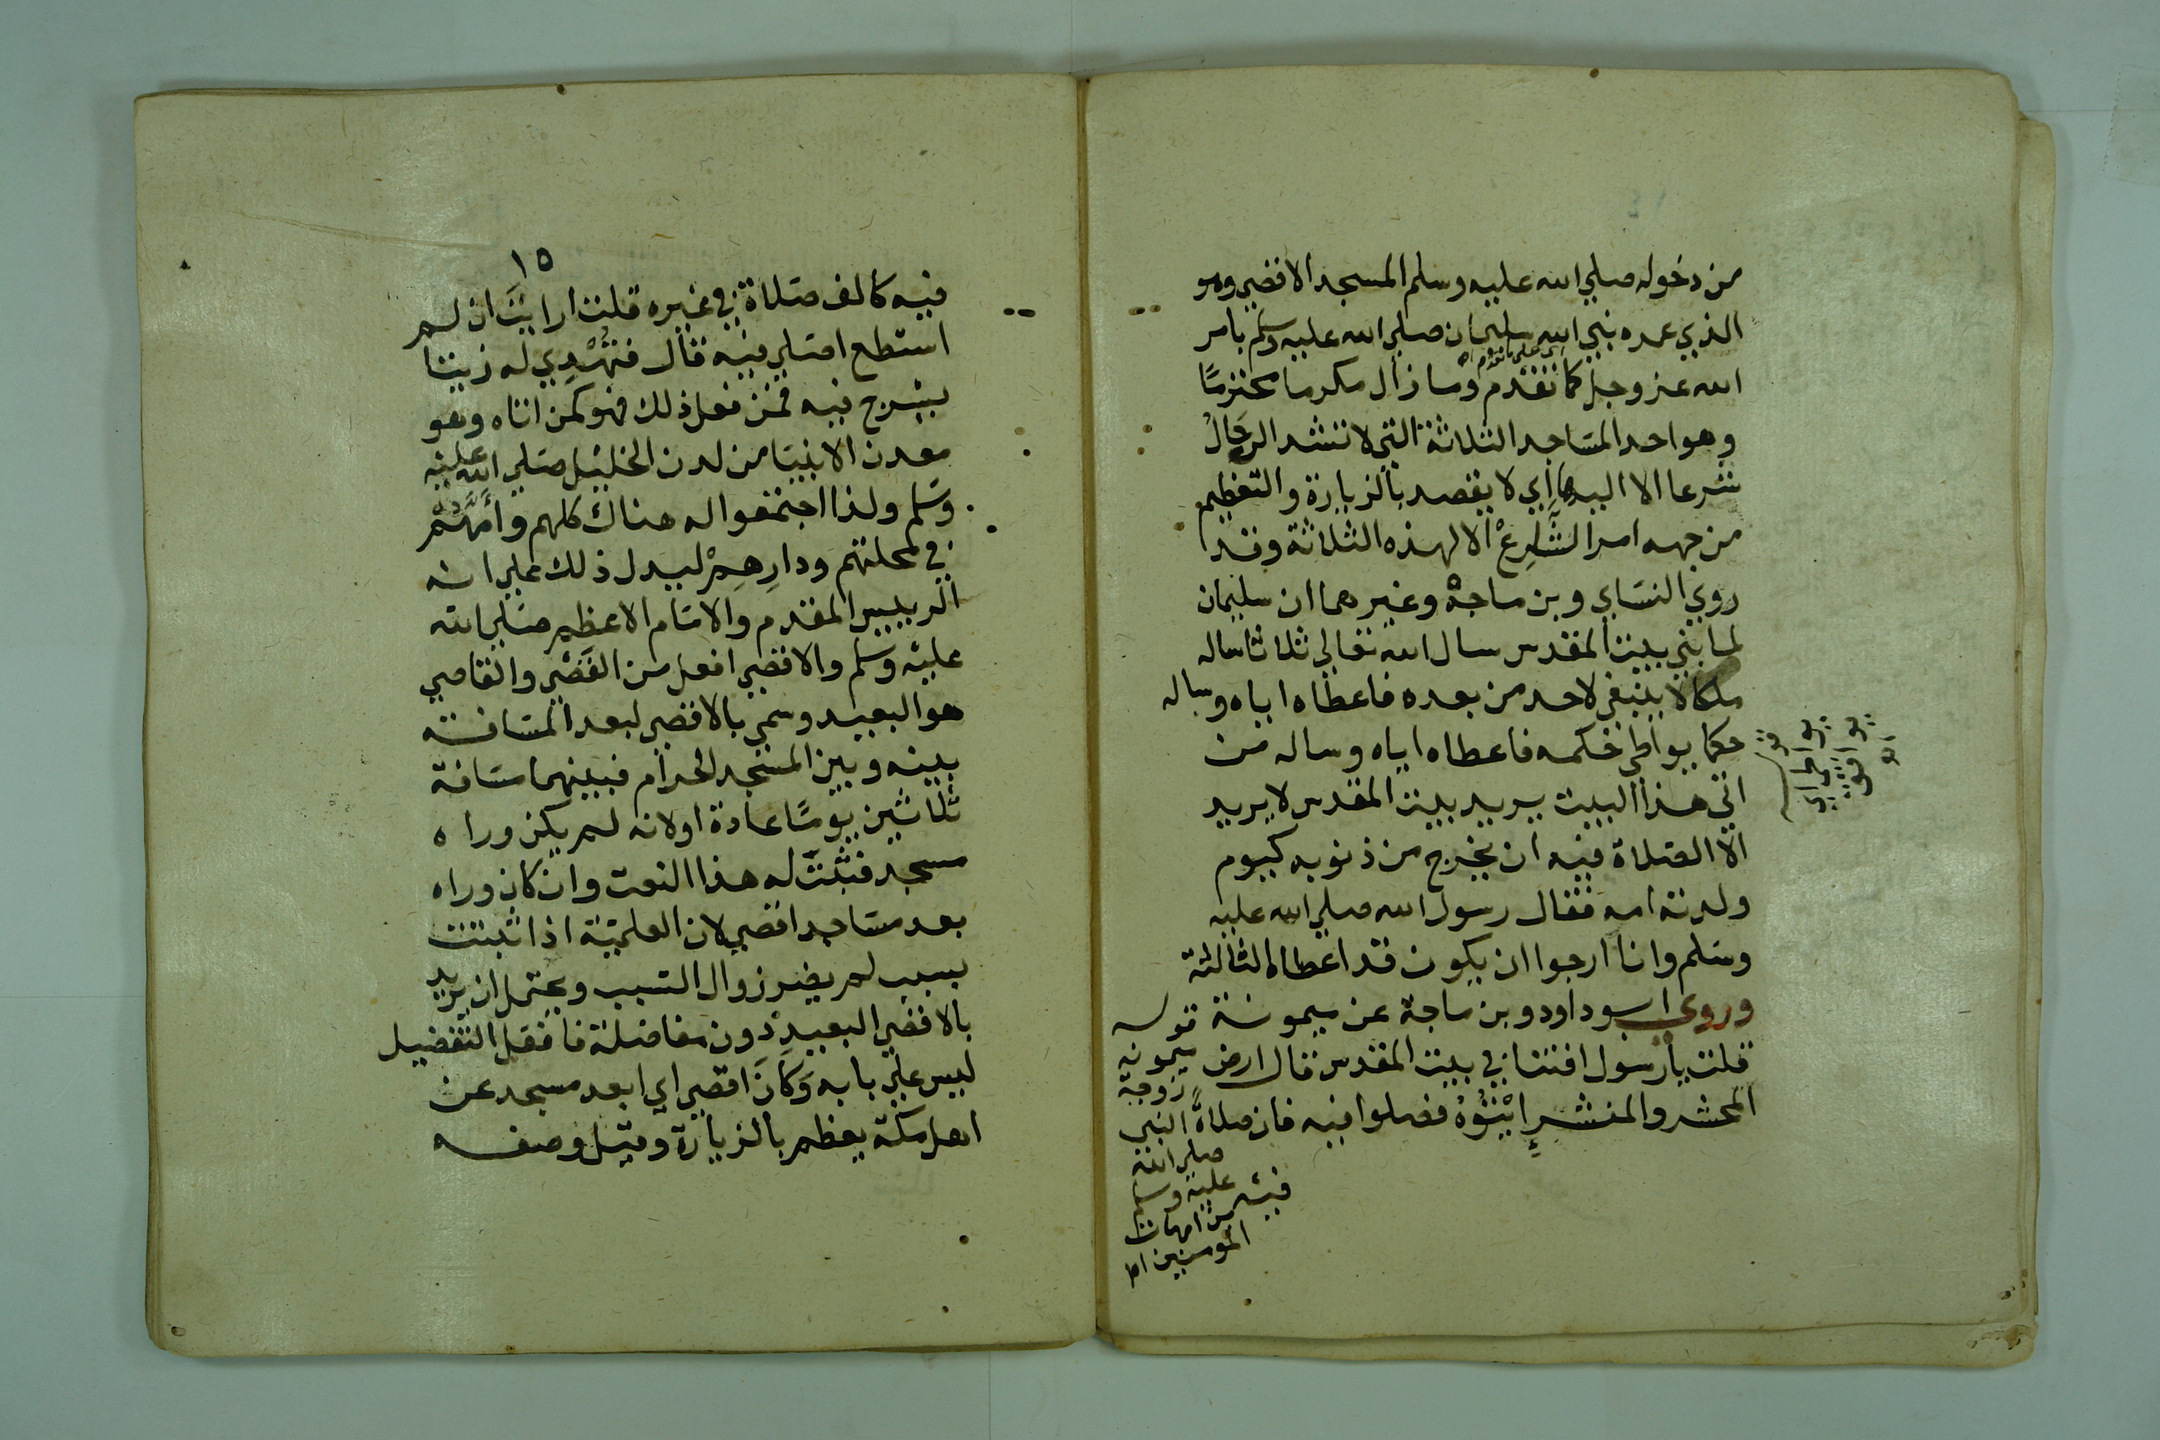 من دخوله صلي الله عليه وسلم المسجد الاقصي وهو
الذي عمده نبي الله سليمان صلي الله عليه وسلم بامر
اي علي ما تقدم اه
الله عز وجل كما تقدم وما زال مكرما محترمًا
وهو احد المسَاجد الثلاثة التي لا تشد الرحَالُ
شرعا الا اليها اي لا يقصد بالزيارة والتعظيم
من جهه امر الشَّارِعْ الا لهذه الثلاثة وقد
روي النسَاي وبن ماجهْ وغيرهما ان سليمان
لما بني بيت المقدس سال الله تعالي ثلاثا ساله
ملكا لا ينبغي لاحد من بعده فاعطاه اياه وساله
حكما يواطي حكمه فاعطاه اياه وساله من
اتي هذا البيت يريد بيت المقدس لا يريد
الا الصَلاة فيه ان يخرج من ذنوبه كيوم
ولدته امه فقال رسول الله صلي الله عليه
وسَلم وانا ارجوا ان يكون قد اعطاه الثالثة
وروي ابو داود وبن ماجة عن ميمونة
قلت يا رسول افتنا في بيت المقدس قال ارض
المحشر والمنشرِ ايْتُوُهُ فصلوا فيه فان صلاةً
فيه
قوله
ميمونه
زوجة
النبي
صلي الله
عليه وسلم
من امهات
المومنين اه
١٥
فيه كالف صَلاة في غيره قلت ارايتَ ان لم
استطع اصَلي فيه قال فتُهْدِي له زيتا
يسْرج فيه فمن فعل ذلك فهو كمن اتاه وهو
معدن الانبيَا من لدن الخليل صَلي الله عليه
وسَلم ولذا اجتمعوا له هناك كلهم وامَّهُمْ
في محلتهم ودارِهِمْ ليدل ذلك علي انه
الرييس المقدم والامَام الاعظم صَلي الله
عليْه وسَلم والاقصي افعل من القَصْي والقاصي
هو البعيد وسمي بالاقصي لبعد المسَافة
بينه وبين المسْجد الحرام فبينهما مسَافة
ثلاثين يومًا عادة او لانه لم يكن وراه
مسجد فثبتْ له هذا النعت وان كان وراه
بعد مسَاجد اقصي لان العلميّة اذا ثبتت
بسبب لم يضر زوال السَبب ويحتمل ان يريد
بالاقصي البعيد دون مفاضلة فافعَل التفضيل
ليس علي بابه وَكاَنَ اقصي اي ابعد مسجد عن
اهل مكة يعظم بالزيارة وقيل وصفه